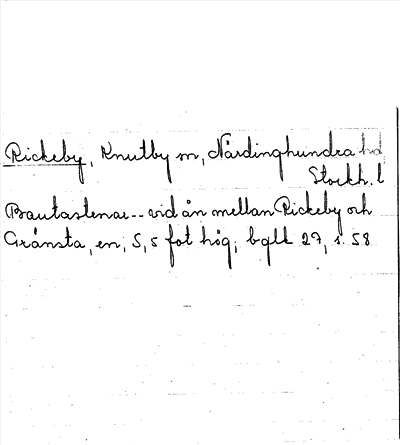 Rickeby, Knutby sn, Närdinghundra hd
Stockh. l
Bautastenar -- vid ån mellan Rickeby och
Gränsta, en, 5,5 fot hög; bqll 27, s. 58